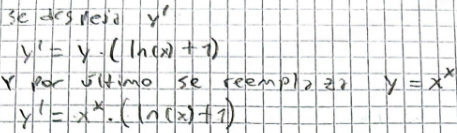 se despeja y'
y' = y · (ln(x) + 1)
Y por último se reemplaza y = x^x
y' = x^x · (ln(x) + 1)